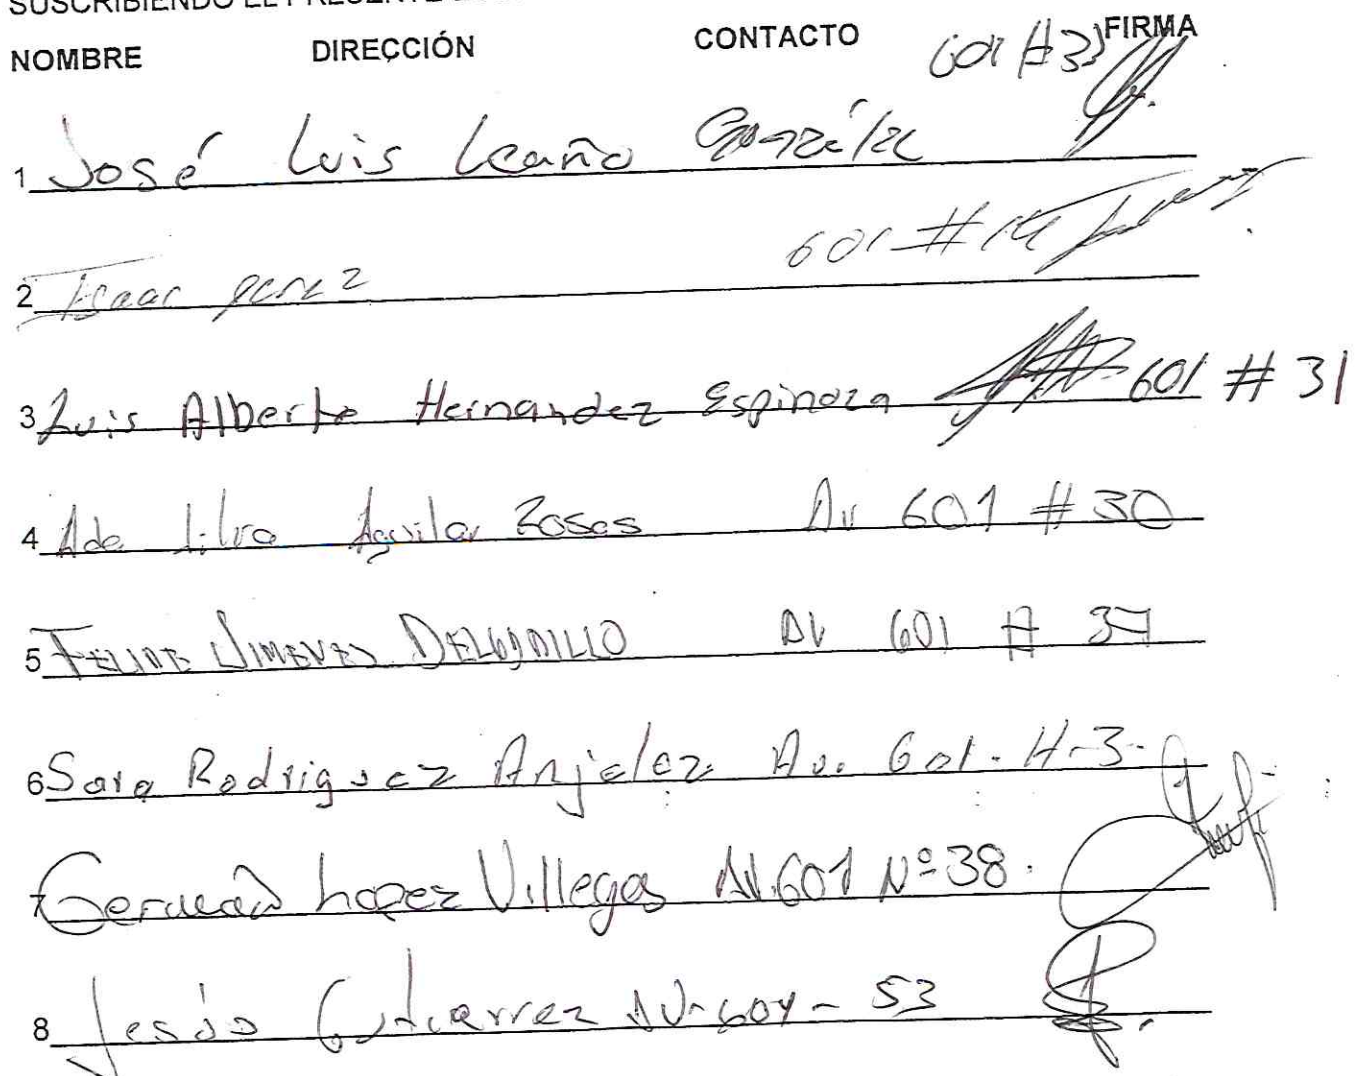 NOMBRE DIRECCIÓN CONTACTO FIRMA
601 #33
1 José Luis Leaño González
2 Isaac perez 601 #14
3 Luis Alberto Hernandez Espinoza 601 # 31
4 Ada Lilia Aguilar Rosas Av 601 # 30
5 FELIPE JIMENEZ DELGADILLO AV 601 # 37
6 Sara Rodriguez Anjelez Av. 601 - H-3-
7 German Lopez Villegas AV. 601 Nº 38.
8 Jesús Gutierrez AV-604 - 53